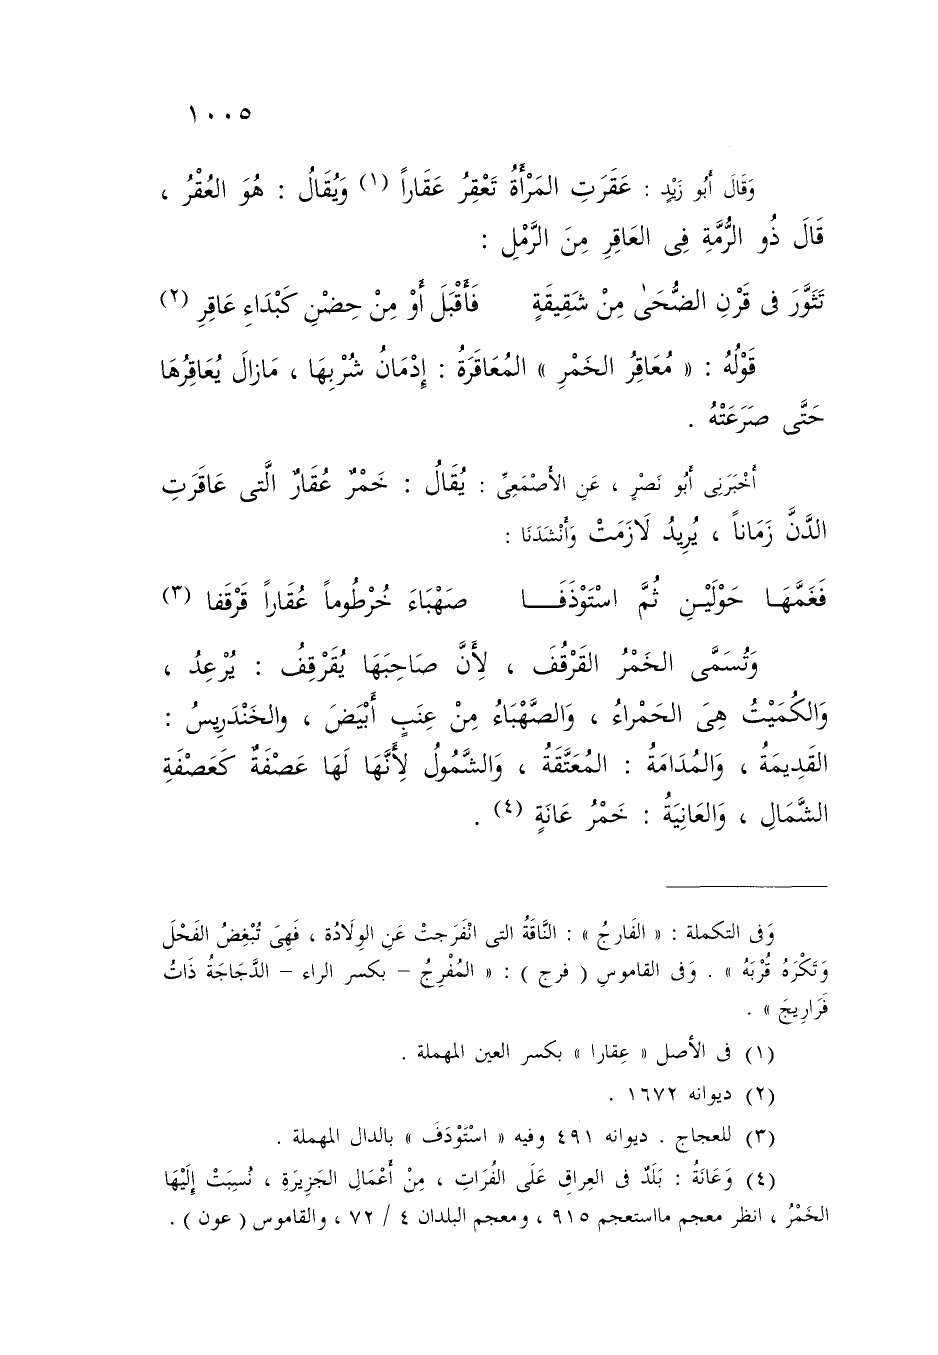 ١٠٠٥
وَقَالَ أَبُو زَيْدٍ : عَقَرَتِ المَرْأَةُ تَعْقِرُ عَقَاراً (١) وَيُقَالُ : هُوَ العُقْرُ ،
قَالَ ذُو الرُّمَّةِ فِى العَاقِرِ مِنَ الرَّمْلِ :
تَثَوَّرَ فى قَرْنِ الضُّحَىٰ مِنْ شَقِيقَةٍ فَأَقْبَلَ أَوْ مِنْ حِضْنِ كَبْدَاءِ عَاقِرِ (٢)
قَوْلُهُ : « مُعَاقِرُ الخَمْرِ » المُعَاقَرَةُ : إِدْمَانُ شُرْبِهَا ، مَازالَ يُعَاقِرُهَا
حَتَّى صَرَعَتْهُ .
أَخْبَرَنِى أَبُو نَصْرٍ ، عَنِ الأَصْمَعِىِّ : يُقَالُ : خَمْرٌ عُقَارٌ الَّتى عَاقَرَتِ
الدَّنَّ زَمَاناً ، يُرِيدُ لَازَمَتْ وَأَنْشَدَنَا :
فَغَمَّهَا حَوْلَيْنِ ثُمَّ اسْتَوْذَفَا صَهْبَاءَ خُرْطُوماً عُقَاراً قَرْقَفا (٣)
وَتُسَمَّى الخَمْرُ القَرْقُفَ ، لِأَنَّ صَاحِبَهَا يُقَرْقِفُ : يُرْعِدُ ،
وَالكُمَيْتُ هِىَ الحَمْراءُ ، وَالصَّهْبَاءُ مِنْ عِنَبٍ أَبْيَضَ ، والخَنْدَرِيسُ :
القَدِيمَةُ ، وَالمُدَامَةُ : المُعَتَّقَةُ ، وَالشَّمُولُ لِأَنَّهَا لَهَا عَصْفَةٌ كَعَصْفَةِ
الشَّمَالِ ، وَالعَانِيَةُ : خَمْرُ عَانَةٍ (٤) .
وَفى التكملة : « الفَارِجُ » : النَّاقَةُ التى انْفَرَجتْ عَنِ الوِلَادُة ، فَهِىَ تُبْغِضُ الفَحْلَ
وَتَكْرَهُ قُرْبَهُ » . وَفى القاموسِ ( فرج ) : « المُفْرِجُ – بكسر الراء – الدَّجَاجَةُ ذَاتُ
فَرَارِيجَ » .
(١) فى الأصل « عِقارا » بكسر العين المهملة .
(٢) ديوانه ١٦٧٢ .
(٣) للعجاج . ديوانه ٤٩١ وفيه « اسْتَوْدَفَ » بالدال المهملة .
(٤) وَعَانَةُ : بَلَدٌ فى العِراقِ عَلَى الفُرَاتِ ، مِنْ أَعْمَالِ الجَزِيرَةِ ، نُسِبَتْ إِلَيْهَا
الخَمْرُ ، انظر معجم مااستعجم ٩١٥ ، ومعجم البلدان ٤ / ٧٢ ، والقاموس ( عون ) .